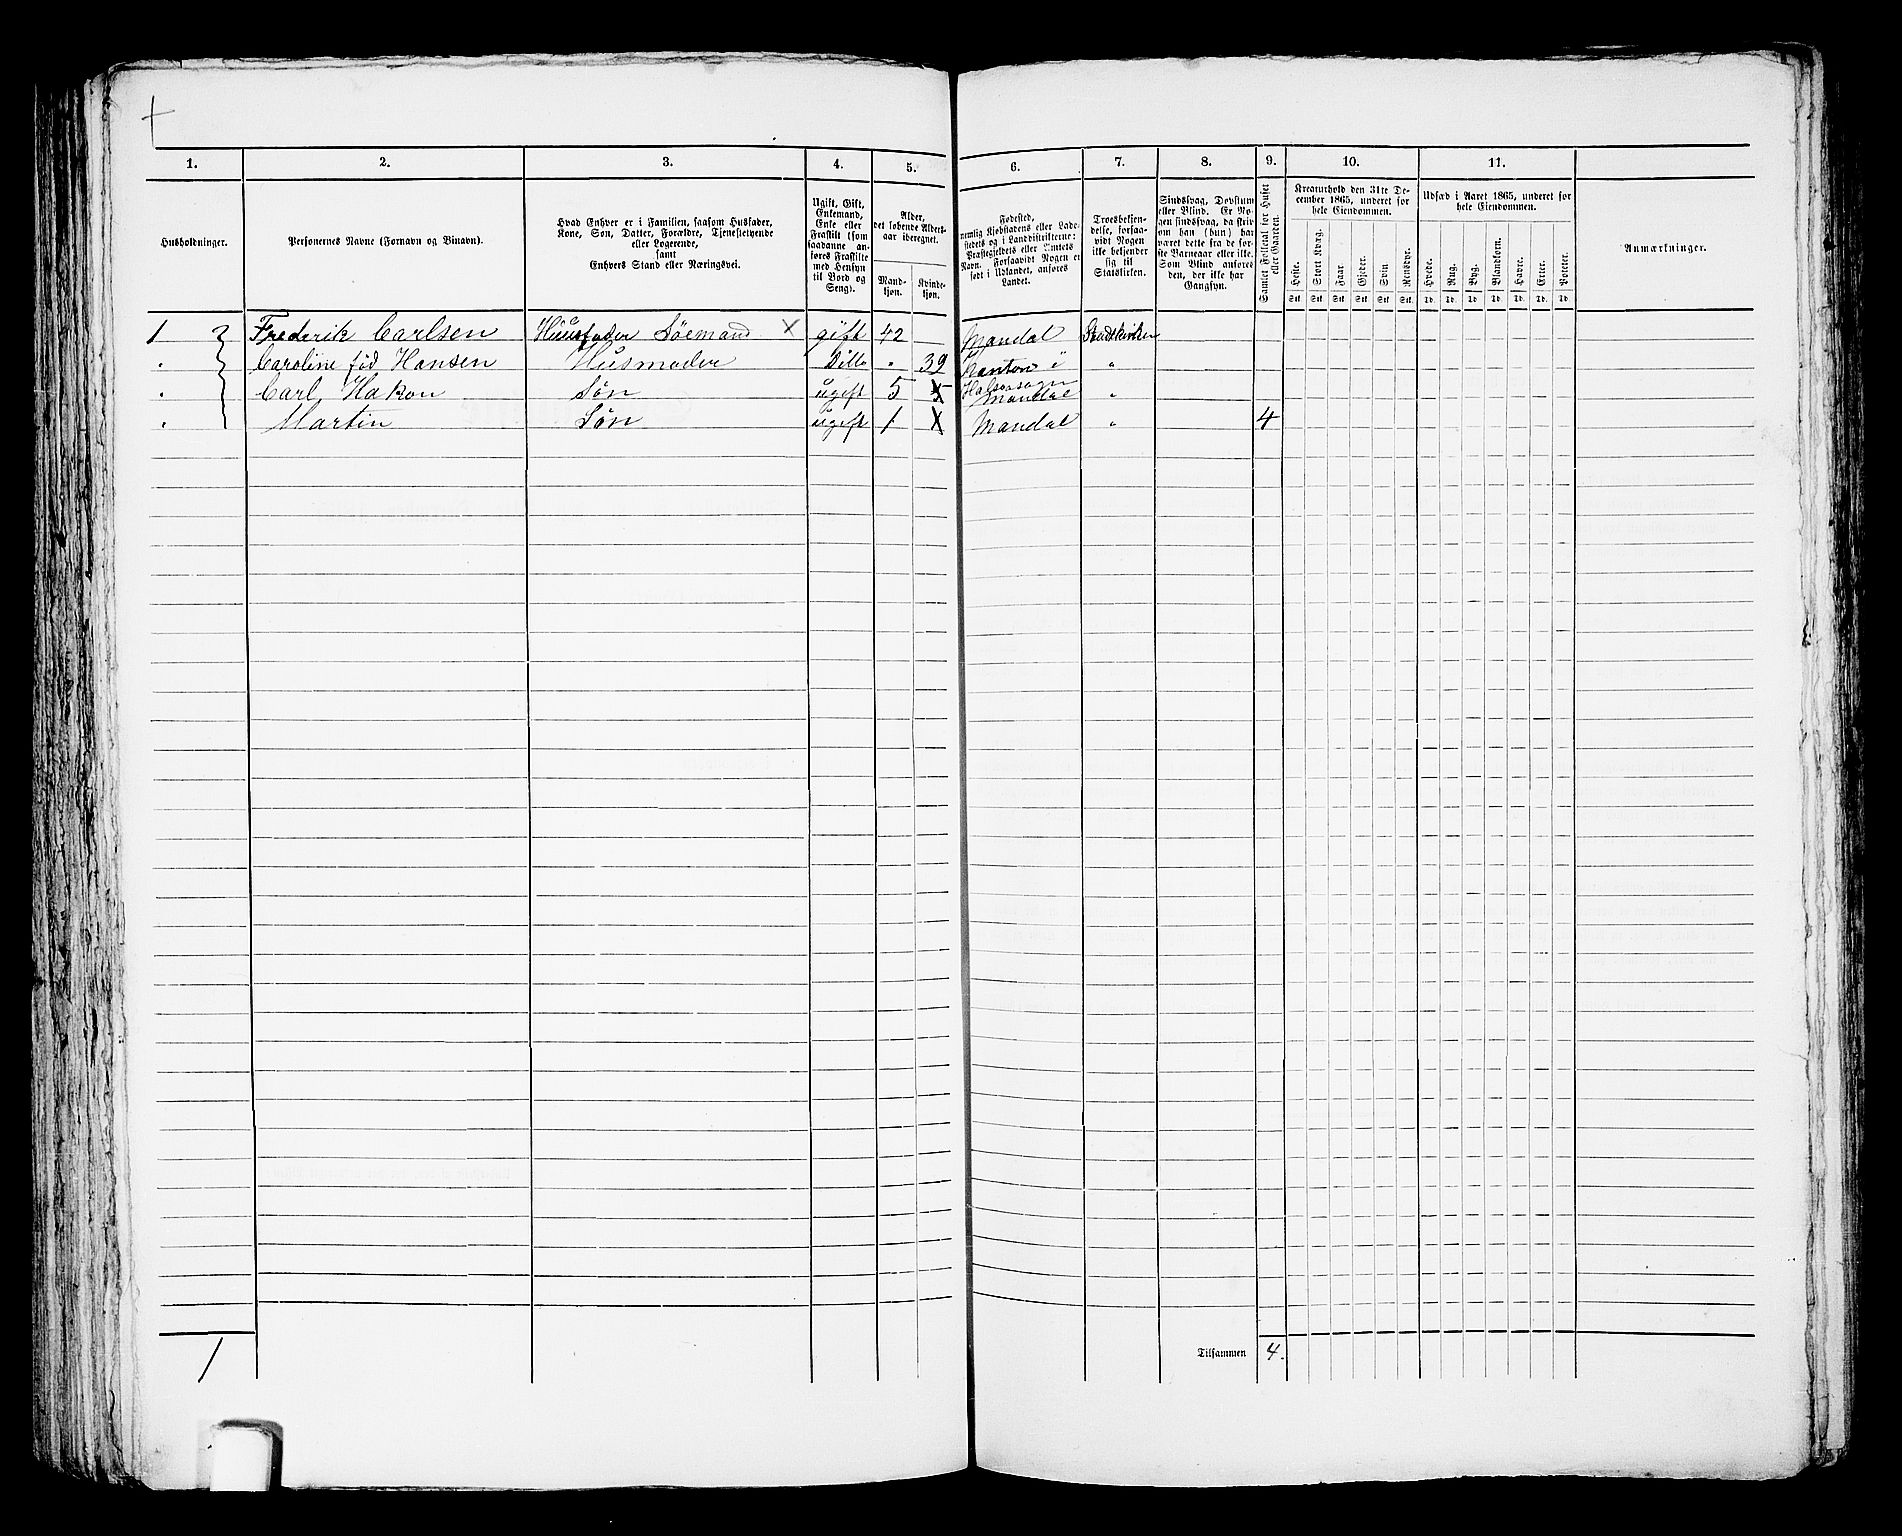 1. 2. 3. 4. 5. 6. 7. 8. 9. 10. 11.
Husholdninger.
Personernes Navne (Fornavn og Binavn).
Hvad Enhver er i Familien, saasom Husfader,
Kone, Søn, Datter, Forældre, Tjenestetyende
eller Logerende,
samt
Enhvers Stand eller Næringsvei.
Ugift, Gift,
Enkemand,
Enke eller
Fraskilt (som
saadanne an-
føres Fraskilte
med Hensyn
til Bord og
Seng).
Alder,
det løbende Alders-
aar iberegnet.
Mand-
kjøn.
Kvinde-
kjøn.
Fødested,
nemlig Kjøbstadens eller Lade-
stedets og i Landdistrikterne:
Præstegjeldets eller Amtets
Navn. Forsaavidt Nogen er
født i Udlandet, anføres
Landet.
Troesbekjen-
delse, forsaa-
vidt Nogen
ikke bekjender
sig til
Statskirken.
Sindssvag, Døvstum
eller Blind. Er No-
gen sindssvag, da skriv
om han (hun) har
været dette fra de før-
ste Barneaar eller ikke.
Som Blind anføres
den, der ikke har
Gangsyn.
Samlet Folketal for Huset
eller Gaarden.
Kreaturhold den 31te De-
cember 1865, underet for
hele Eiendommen.
Heste. Stort Kvæg. Faar. Gjeder. Svin Rensdyr.
Stk. Stk. Stk. Stk. Stk. Stk.
Udsæd i Aaret 1865, underet for
hele Eiendommen.
Hvede. Rug. Byg. Blandkorn. Havre. Erter. Poteter.
Td. Td. Td. Td. Td. Td. Td.
Anmærkninger.
1 Frederik Carlsen Huusfader Söemand x gift 42 Mandal Stadskirken
" Caroline föd Hansen Husmoder Ditto " 39 i "
" Carl Hakon Søn ugift 5 Halsaasogn Mandal "
" Martin Søn ugift 1 Mandal " 4
1 Tilsammen 4.